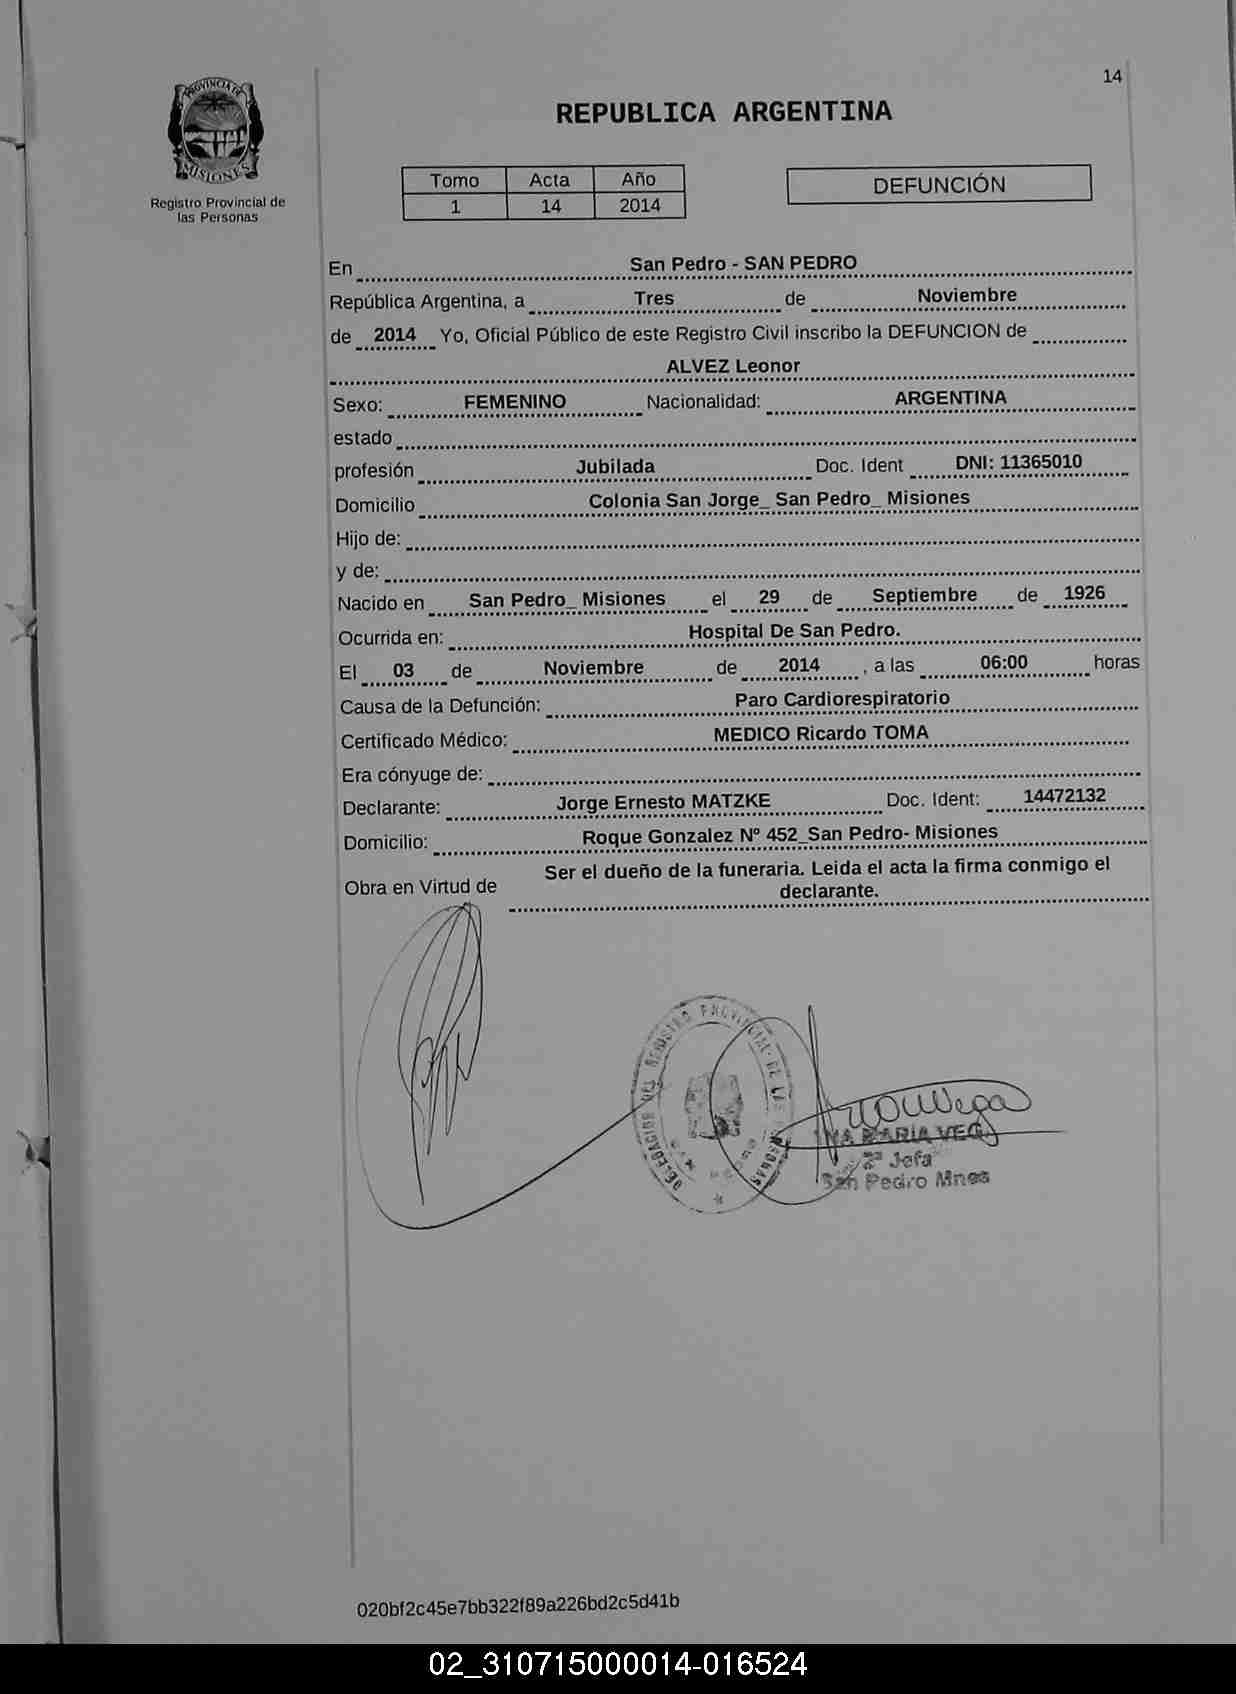 14
PROVINCIA DE
MISIONES
Registro Provincial de
las Personas
REPUBLICA ARGENTINA
Tomo Acta Año
1 14 2014
DEFUNCIÓN
En San Pedro - SAN PEDRO
República Argentina, a Tres de Noviembre
de 2014 Yo, Oficial Público de este Registro Civil inscribo la DEFUNCION de
ALVEZ Leonor
Sexo: FEMENINO Nacionalidad: ARGENTINA
estado
profesión Jubilada Doc. Ident DNI: 11365010
Domicilio Colonia San Jorge_ San Pedro_ Misiones
Hijo de:
y de:
Nacido en San Pedro_ Misiones el 29 de Septiembre de 1926
Ocurrida en: Hospital De San Pedro.
El 03 de Noviembre de 2014 , a las 06:00 horas
Causa de la Defunción: Paro Cardiorespiratorio
Certificado Médico: MEDICO Ricardo TOMA
Era cónyuge de:
Declarante: Jorge Ernesto MATZKE Doc. Ident: 14472132
Domicilio: Roque Gonzalez Nº 452_San Pedro- Misiones
Obra en Virtud de Ser el dueño de la funeraria. Leida el acta la firma conmigo el
declarante.
DELEGACION DEL REGISTRO PROVINCIAL DE LAS PERSONAS
MARIA VEGA
2ª Jefa
San Pedro Mnes
020bf2c45e7bb322f89a226bd2c5d41b
02_310715000014-016524